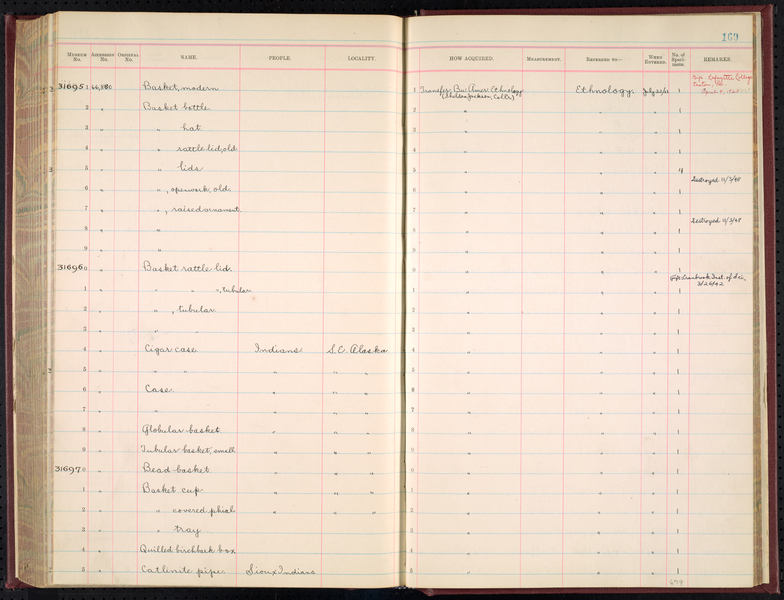 169
MUSEUM No. ACCESSION No. ORIGINAL No. NAME. PEOPLE. LOCALITY. HOW ACQUIRED. MEASUREMENT. REFERRED TO— WHEN ENTERED. No. of Specimens. REMARKS.
31695 1 Basket, modern 1 Transfer, Bu. Amer. Ethnology Ethnology. 1 Lafayette College
(Sheldon Jackson, Coll'r)
2 " Basket bottle 2 " " " 1
3 " " hat 3 " " " 1
4 " " rattle lid, old 4 " " " 1
5 " " lids 5 " " " 4
Destroyed 11/3/48
6 " " , openwork, old. 6 " " " 1
7 " " , raised ornament. 7 " " " 1
Destroyed 11/3/48
8 " " 8 " " " 1
9 " " 9 " " " 1
31696 0 " Basket rattle lid. 0 " " " 1
Cranbrook Inst. of Sci.
1 " " " " , tubular 1 " " " 1
2 " " , tubular 2 " " " 1
3 " " " 3 " " " 1
4 " Cigar case Indians S.E. Alaska 4 " " " 1
5 " " " " " " 5 " " " 1
6 " Case " " " 6 " " " 1
7 " " " " " 7 " " " 1
8 " Globular basket " " " 8 " " " 1
9 " Tubular basket, small " " " 9 " " " 1
31697 0 " Bead basket " " " 0 " " " 1
1 " Basket cup " " " 1 " " " 1
2 " " covered phial " " " 2 " " " 1
3 " " tray 3 " " " 1
4 " Quilled birchbark box 4 " " " 1
5 " Catlinite pipe. Sioux Indians 5 " " " 1